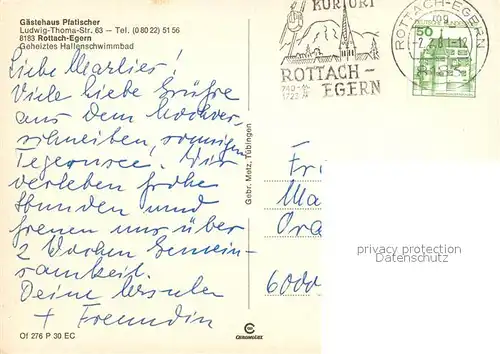 Gästehaus Pfatischer
Ludwig-Thoma-Str. 63 – Tel. (0 80 22) 51 56
8183 Rottach-Egern
Geheiztes Hallenschwimmbad
KURORT
ROTTACH-
EGERN
ROTTACH-EGERN
DEUTSCHE BUNDES
50
Liebe Marlies!
Viele liebe Grüße
aus dem hochver-
schneiten, sonnigen
Tegernsee. Wir
verleben frohe
Stunden und
freuen uns über
2 Wochen Gemein-
samkeit.
Deine Ursula
+ Freundin
Gebr. Metz, Tübingen
Fr
Ma
Ora
6000
privacy protection
Datenschutz
Of 276 P 30 EC
CHROMOLUX